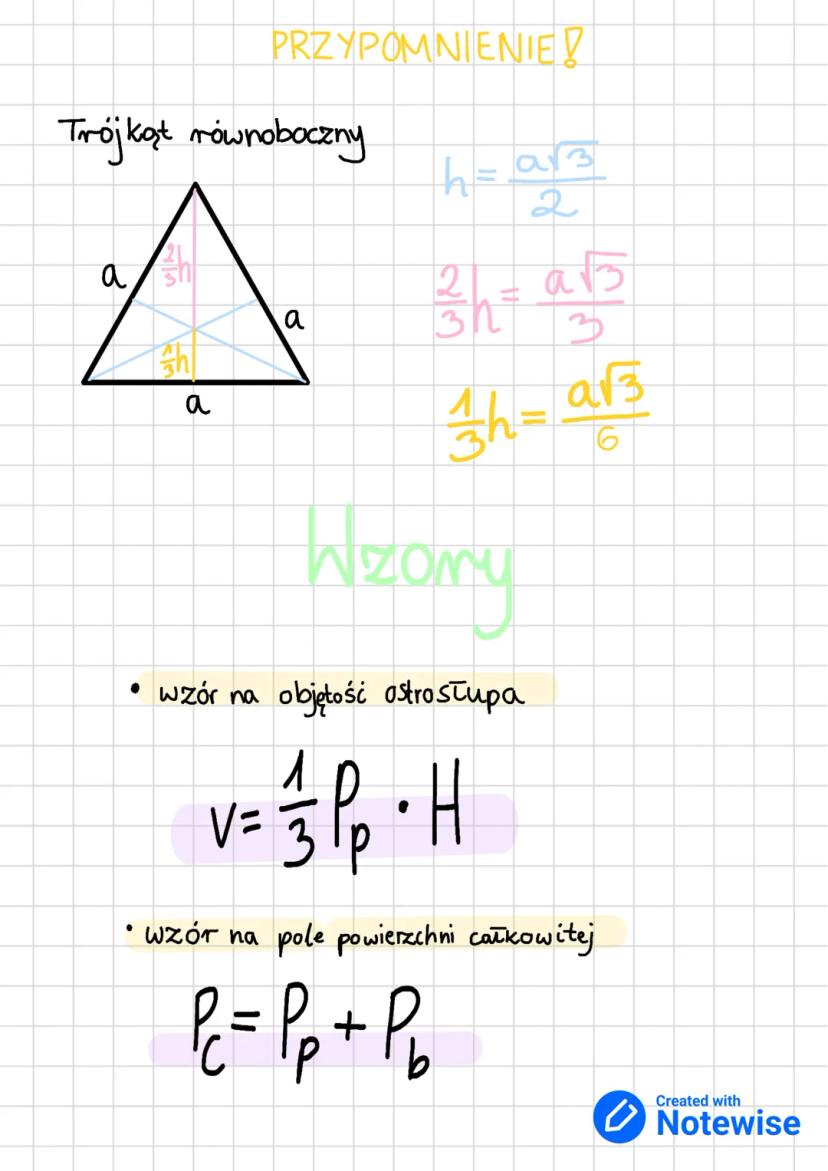 PRZYPOMNIENIE!
Trójkąt równoboczny
h = a√3/2
2/3h
a
a
2/3h = a√3/3
1/3h
a
1/3h = a√3/6
Wzory
• wzór na objętość ostrosłupa
V = 1/3 Pp · H
• wzór na pole powierzchni całkowitej
Pc = Pp + Pb
Created with
Notewise